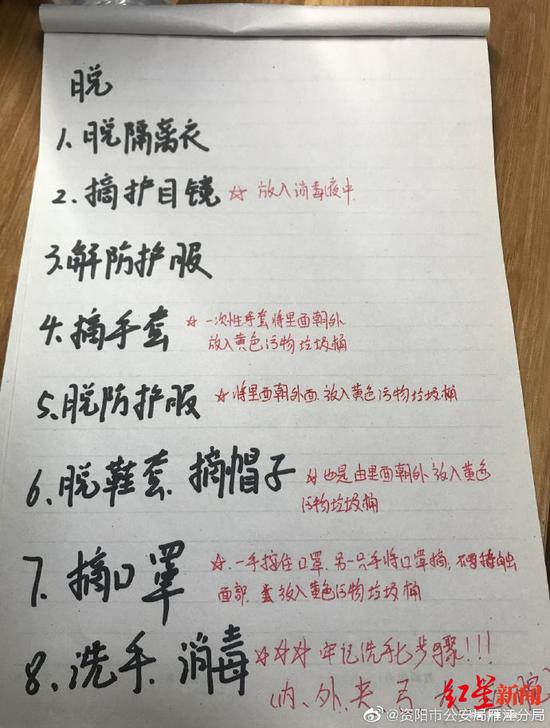 脱
1. 脱隔离衣
2. 摘护目镜 ☆ 放入消毒液中
3. 解防护服
4. 摘手套 ☆ 一次性手套将里面朝外
放入黄色污物垃圾桶
5. 脱防护服 ☆ 将里面朝外面.放入黄色污物垃圾桶
6. 脱鞋套 摘帽子 ☆ 也是由里面朝外放入黄色
污物垃圾桶
7. 摘口罩 ☆. 一手按住口罩.另一只手将口罩摘,不得接触
面部. 放入黄色污物垃圾桶
8. 洗手 消毒 ☆☆☆ 牢记洗手七步骤!!!
(内、外、夹、弓、
红星新闻
@资阳市公安局雁江分局